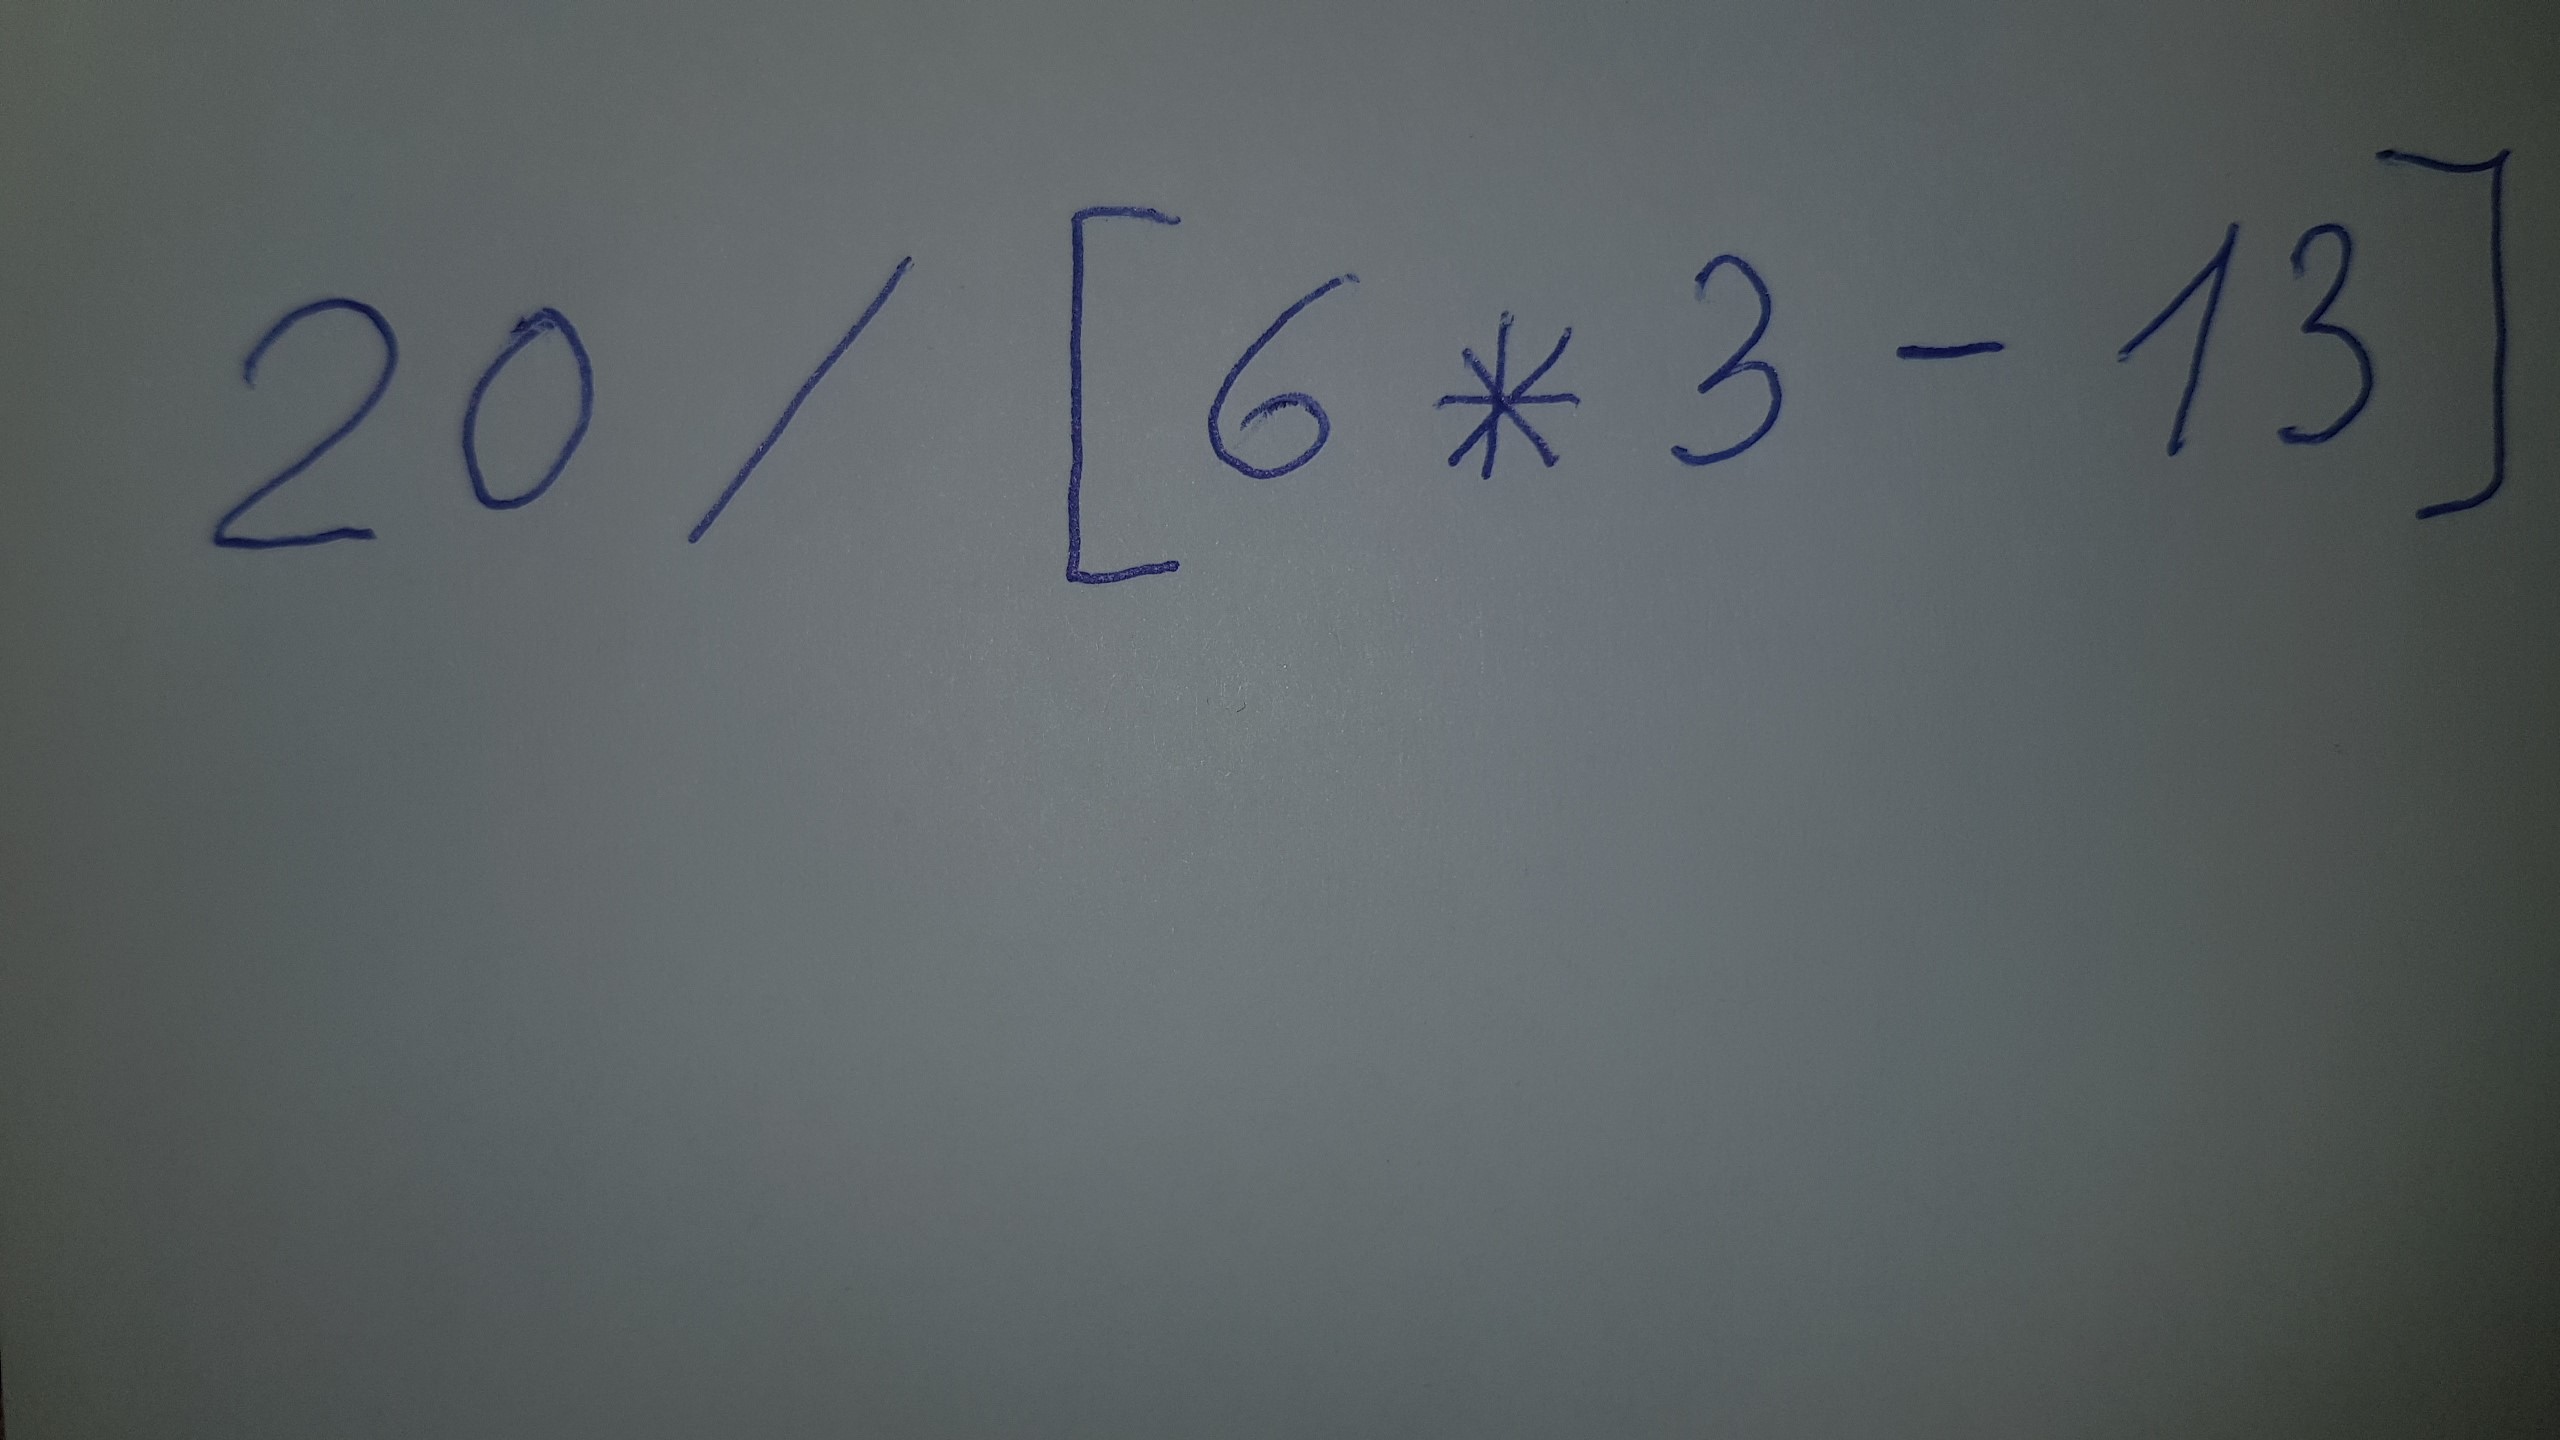 20 / [6 * 3 - 13]